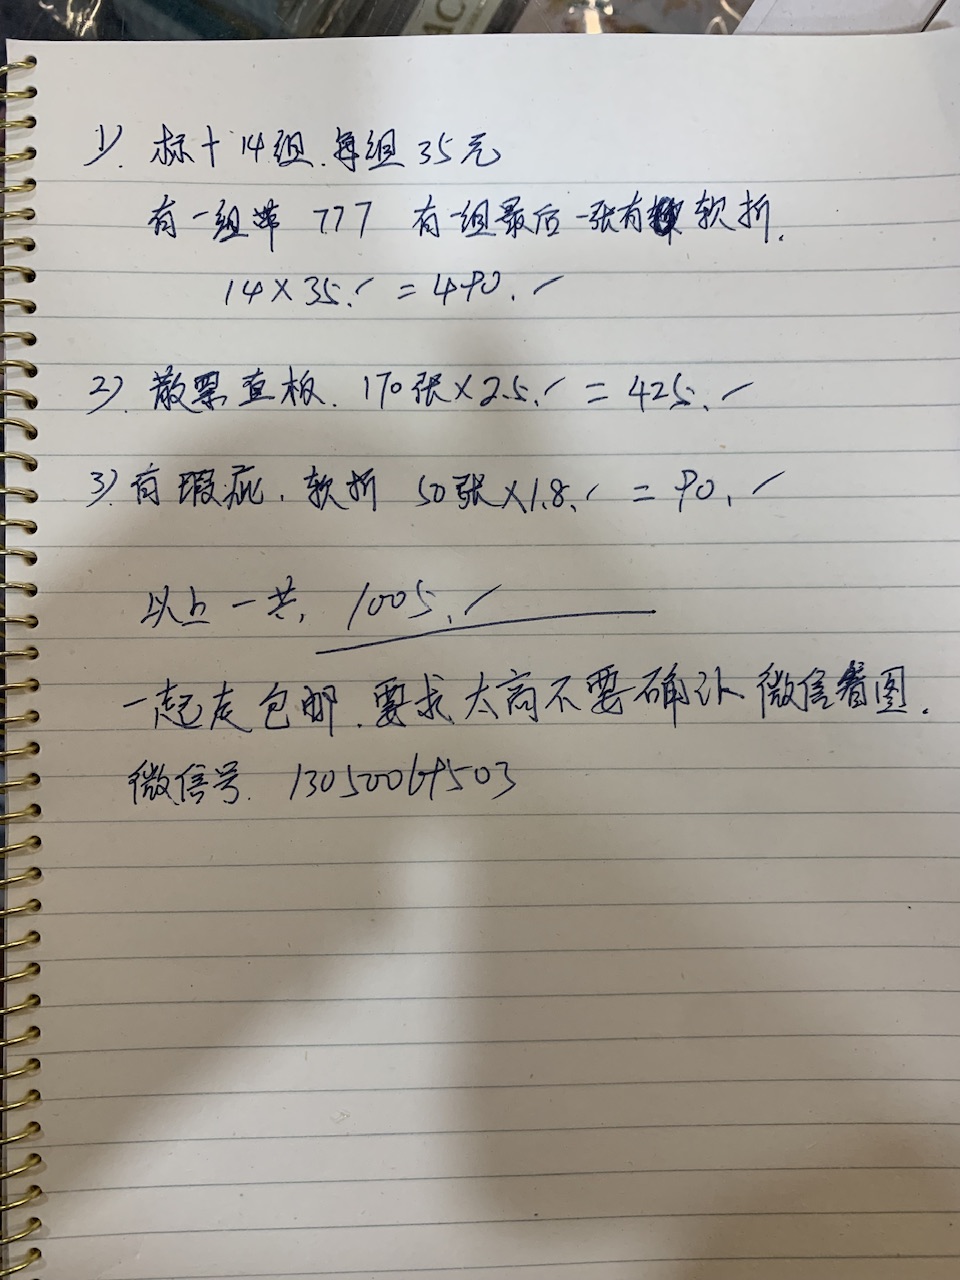 1). 标十14组.每组35元
有一组带 777 有一组最后一张有软折.
14×35.- = 490.-
2). 散票直板. 170张×2.5.- = 425.-
3) 有瑕疵. 软折 50张×1.8.- = 90.-
以上一共. 1005.-
一起走包邮.要求太高不要确认 微信看图.
微信号. 13050069503